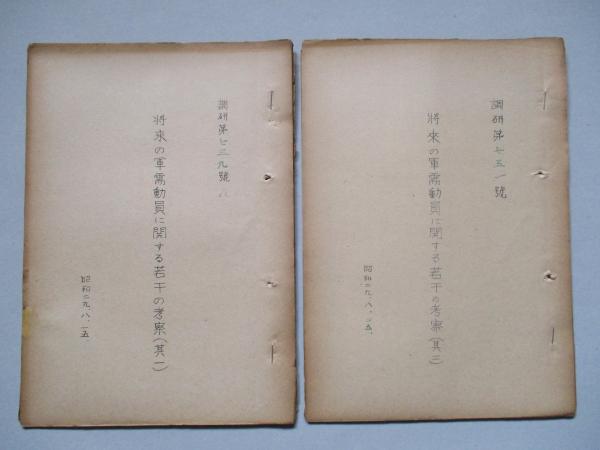 調研第七三九號
将来の軍需動員に関する若干の考察(其一)
昭和二九、八、一五、
調研第七五一號
将来の軍需動員に関する若干の考察(其三)
昭和二九、八、二五、